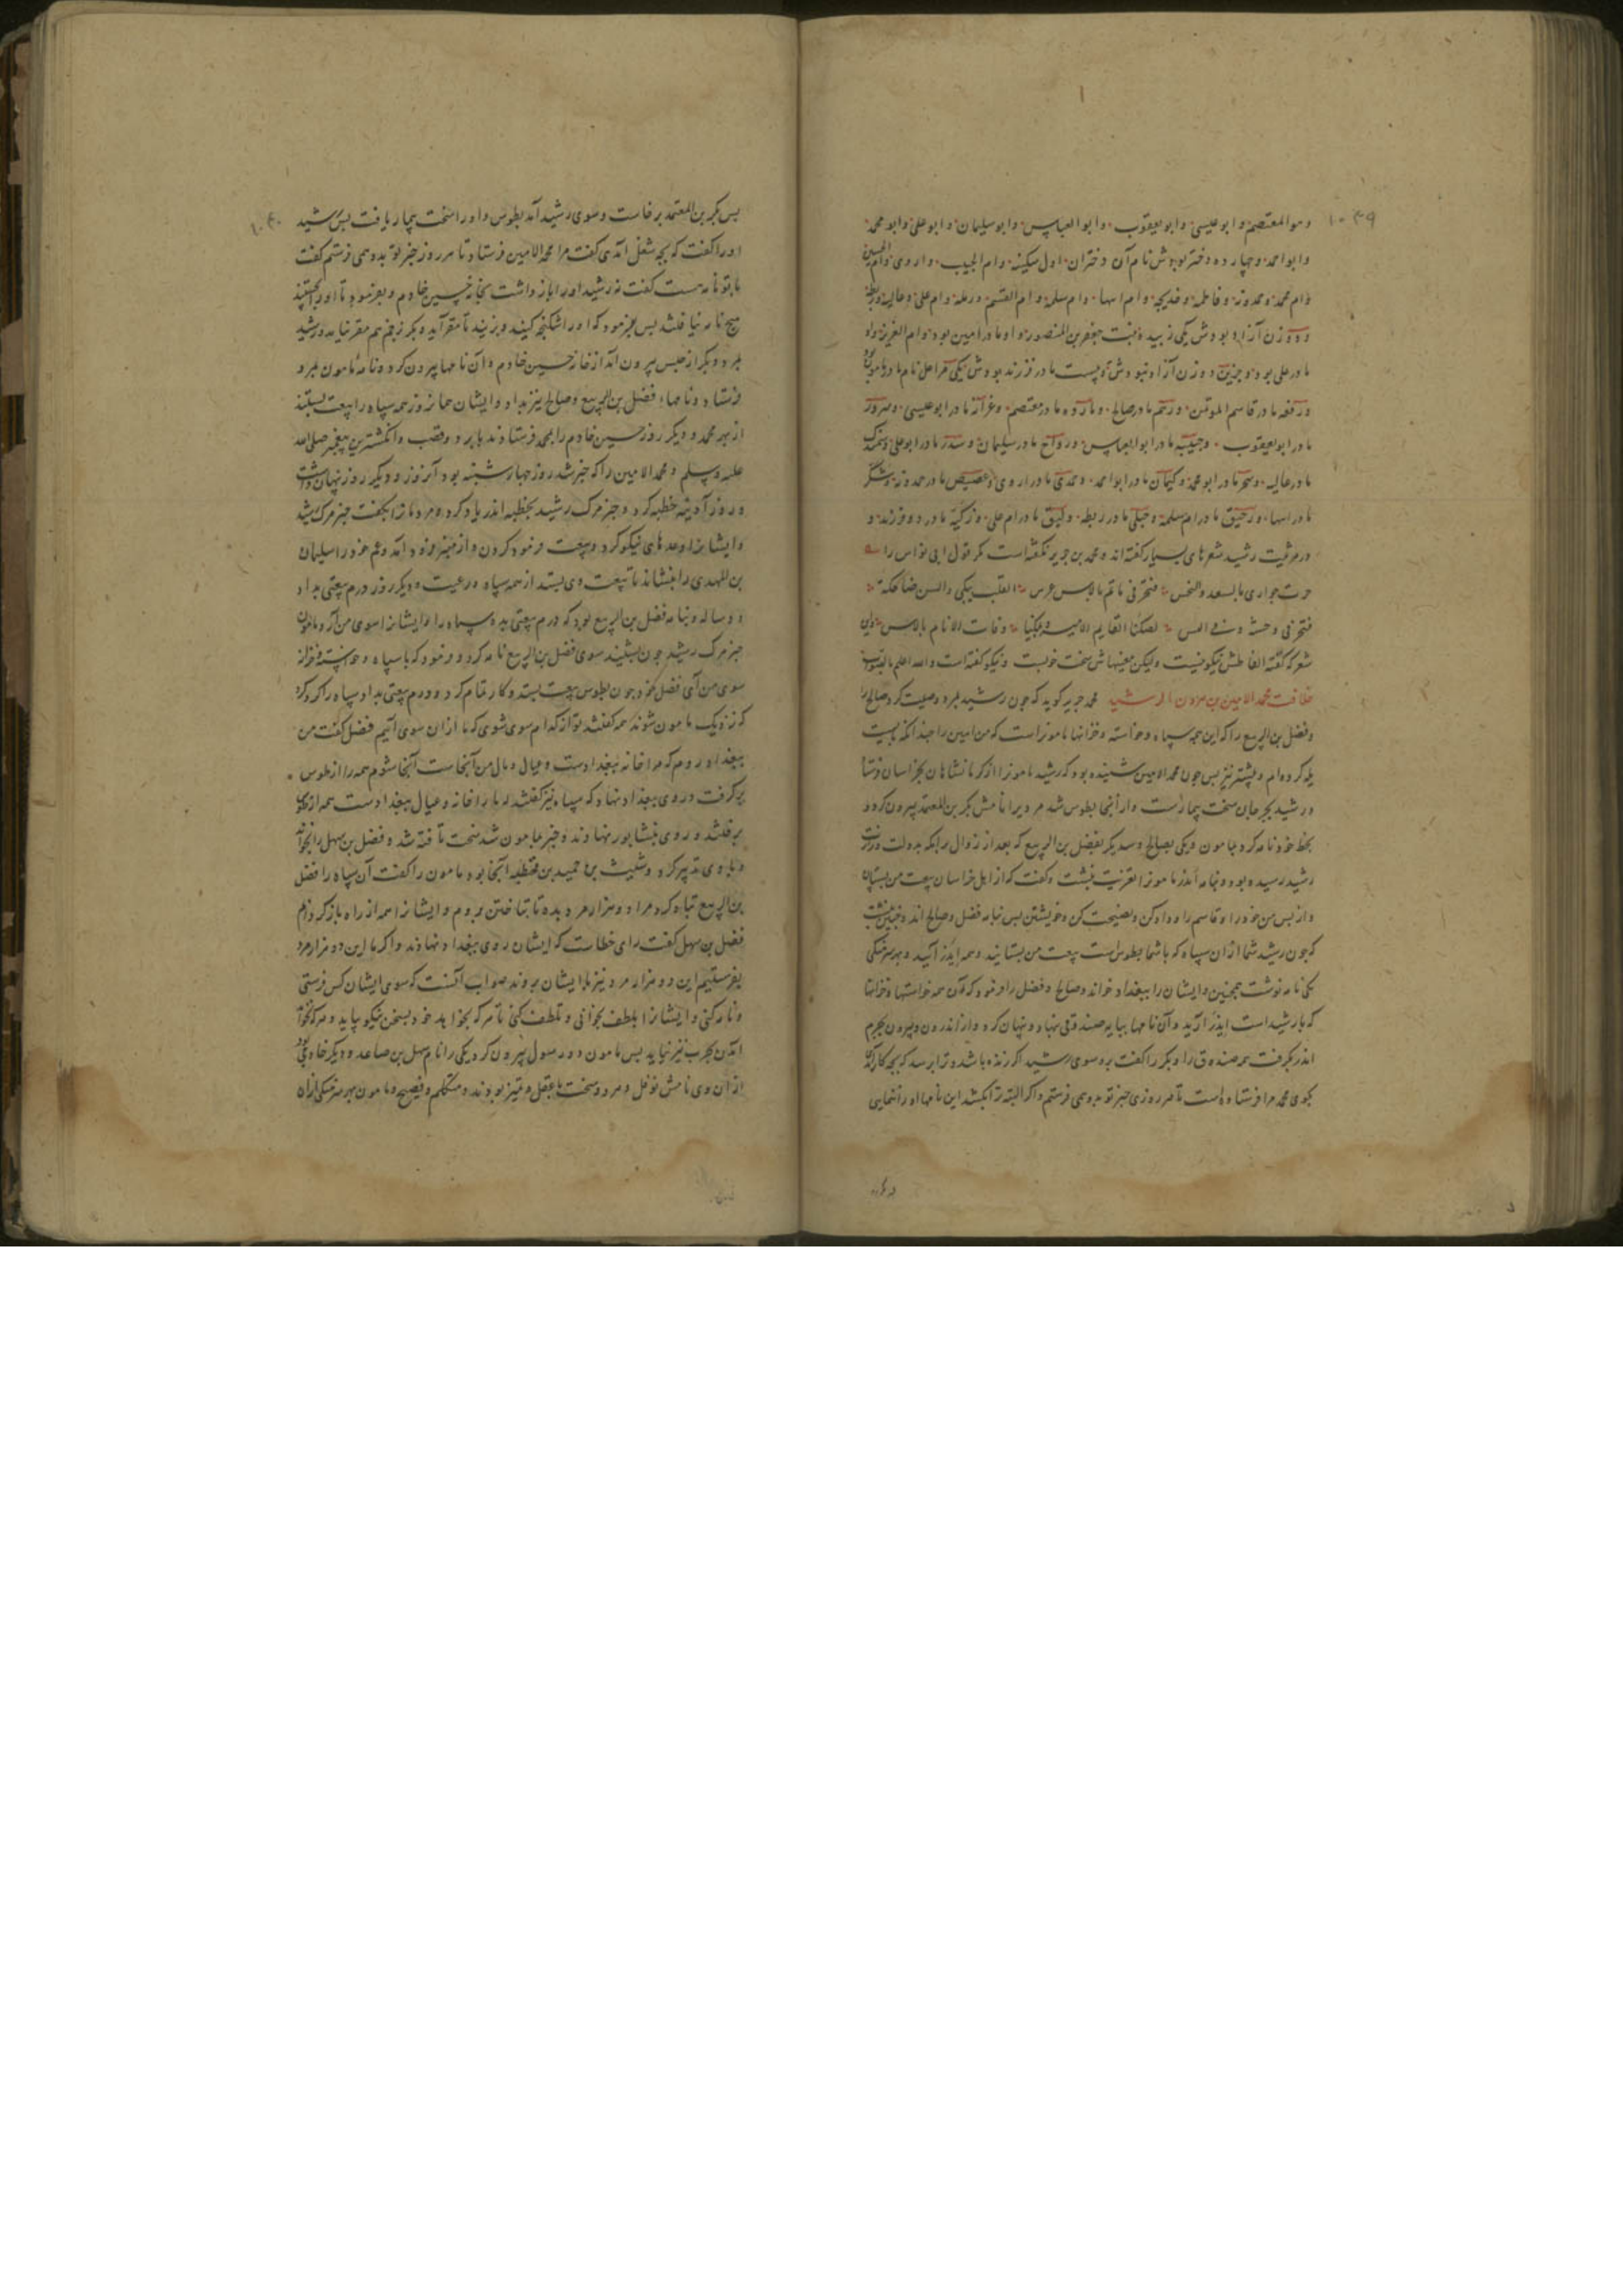 ۱۰۳۹
وهو المعتصم و ابو عیسی و ابو یعقوب و ابو العباس و ابو سلیمان و ابو علی و ابو محمد
و ابو احمد و چهارده دختر بودش نام آن دختران اول سکینه و ام الحبیب و اروی و ام الحسن
و ام محمد و حمدونه و فاطمه و خدیجه و ام اسها و ام سلمه و ام القسم و رمله و ام علی و عالیه و ریطه
و زن آزاد بودش یکی زبیده بنت جعفر بن المنصور و او مادر امین بود و ام العزیز
مادر علی بود و جزین دو زن آزاد نبودش
مادر قاسم المؤتمن و رحم مادر صالح و مارده مادر معتصم و عرآبه مادر ابو عیسی
مادر ابو یعقوب و خبیثه مادر ابو العباس و رواح مادر سلیمان و سدر مادر ابو علی
مادر عالیه و سحر مادر ابو محمد و کیمان مادر ابو احمد مادر اروی و عصیص مادر حمدونه
مادر اسها و رحیق مادر ام سلمه و حلی مادر ریطه مادر ام علی
و در مرثیت رشید شعرهای بسیار گفته اند و محمد بن جریر نگفته است مگر قول ابی نواس را
جرت جواری بالسعد والنحس فنحن فی ماتم بالامس عرس القلب یبکی والسن ضاحکة
فنحن فی وحشة و فی انس یضحکنا القایم الامین و یبکینا وفات الامام بالامس
شعر که گفته الفاظش نیکو نیست ولیکن معنیهاش سخت خوبست و نیکو گفته است والله اعلم بالصواب
خلافت محمد الامین بن هرون الرشید محمد جریر گوید که چون رشید بمرد وصیت کرد صالح را
و فضل بن الربیع را که این همه سپاه و خواسته و خزانها مامونراست که من امین را چندانکه بایست
بله کرده ام و پیشتر نیز پس چون محمد الامین شنیده بود که رشید مامونرا از کرمانشاهان بخراسان فرستاد
و رشید بجرجان سخت بیمار است و از آنجا بطوس شد مردیرا نامش بکر بن المعتمد بیرون کرد و
بخط خود نامه کرد بمامون و یکی بصالح و سدیگر بفضل بن الربیع که بعد از زوال
رشید رسیده بود و بنامه اندر مامونرا تعزیت نبشت و گفت که از اهل خراسان بیعت من بستان
و از پس من خود را و قاسم را و داد کن و نصیحت کن و خویشتن پس بنامه فضل و صالح اندر چنین نبشت
که چون رشید شما از ان سپاه که با شما بطوس است بیعت من بستانید و همه ایدر آئید و بهر سرهنگی
یکی نامه نوشت همچنین و ایشان را ببغداد خواند و صالح و فضل را فرمود که آن همه خواستها و خزانها
که با رشید است ایدر آرید و آن نامها بپایه صندوقی نهاد و نهان کرد و از اندرون و بیرون بچرم
اندر گرفت همه صندوق را و بکر را گفت برو سوی رشید اگر زنده باشد و ترا پرسد که بچه کار آمدی
بگوی محمد مرا فرستاده است تا هر روزی خبر تو بدو همی فرستم و اگر البته ترا بکشد این نامها او را ننمایی
۱۰۴۰
پس بکر بن المعتمد برخاست و سوی رشید آمد بطوس و او را سخت بیمار یافت پس رشید
او را گفت که بچه شغل آمدی گفت مرا محمد الامین فرستاد تا هر روز خبر تو بدو همی فرستم گفت
با تو نامه هست گفت نه رشید او را باز داشت بخانه حسین خادم و بفرمود تا او را بجستند
هیچ نامه نیافتند پس بفرمود که او را شکنجه کنید و بزنید تا مقر آید و بکر زخم هم مقر نیامد و رشید
بمرد و بکر از حبس بیرون آمد از خانه حسین خادم و آن نامها بیرون کرد و نامه مامون بمرو
فرستاد و نامهاء فضل بن الربیع و صالح نیز بداد و ایشان همانروز همه سپاه را بیعت بستند
از بهر محمد و دیگر روز حسین خادم را بمحمد فرستادند با برد و قضیب و انگشترین پیغمبر صلی الله
علیه وسلم و محمد الامین را که خبر شد روز چهارشنبه بود آنروز و دیگر روز پنهان داشت
و روز آدینه خطبه کرد و خبر مرگ رشید بخطبه اندر یاد کرد و مردمانرا بگفت خبر مرگ رشید
و ایشانرا وعدهای نیکو کرد و بیعت فرمود کردن و از منبر فرود آمد و عم خود را سلیمان
بن المهدی را بنشاند تا بیعت وی بستد از همه سپاه و رعیت و دیگر روز درم بیعتی بداد
دو ساله و بنامه فضل بن الربیع بود که درم بیعتی بده سپاه را و ایشانرا سوی من آر و مامون
خبر مرگ رشید چون بشنید سوی فضل بن الربیع نامه کرد و فرمود که با سپاه و خواسته و خزانه
سوی من آی فضل خود چون بطوس بیعت بستد و کار تمام کرد و درم بیعتی بداد سپاه را گرد کرد
که نزدیک مامون شوند همه گفتند تو از کدام سوی شوی که ما از ان سوی آئیم فضل گفت من
ببغداد روم که مرا خانه ببغداد است و عیال و مال من آنجاست آنجا شوم همه را از طوس
برگرفت و روی ببغداد نهاد که سپاه نیز گفتند ما را خانه و عیال ببغداد ست همه
برفتند و روی بنشابور نهادند و خبر مامون شد سخت تافته شد و فضل بن سهل را بخواند
و با وی تدبیر کرد و شبیب بن حمید بن قحطبه آنجا بود مامون را گفت آن سپاه را فضل
بن الربیع تباه کرد مرا دو هزار مرد بده تا بتاختن بروم و ایشانرا همه از راه باز گردانم
فضل بن سهل گفت رای خطاست که ایشان روی ببغداد نهادند و اگر ما این دو هزار مرد
بفرستیم این دو هزار مرد نیز با ایشان بروند صواب آنست که سوی ایشان کس فرستی
و نامه کنی و ایشانرا بلطف بخوانی و تلطف کنی تا هر که بخواهد خود بسخن نیکو بیاید و هر که نخواهد
آمدن بحرب نیز نیاید پس مامون دو رسول بیرون کرد یکی را نام سهل بن صاعد و دیگر خادمی
از آن وی نامش نوفل و هر دو سخت باعقل و تمیز بودند و متکلم و فصیح و مامون بهر سرهنگی از ان